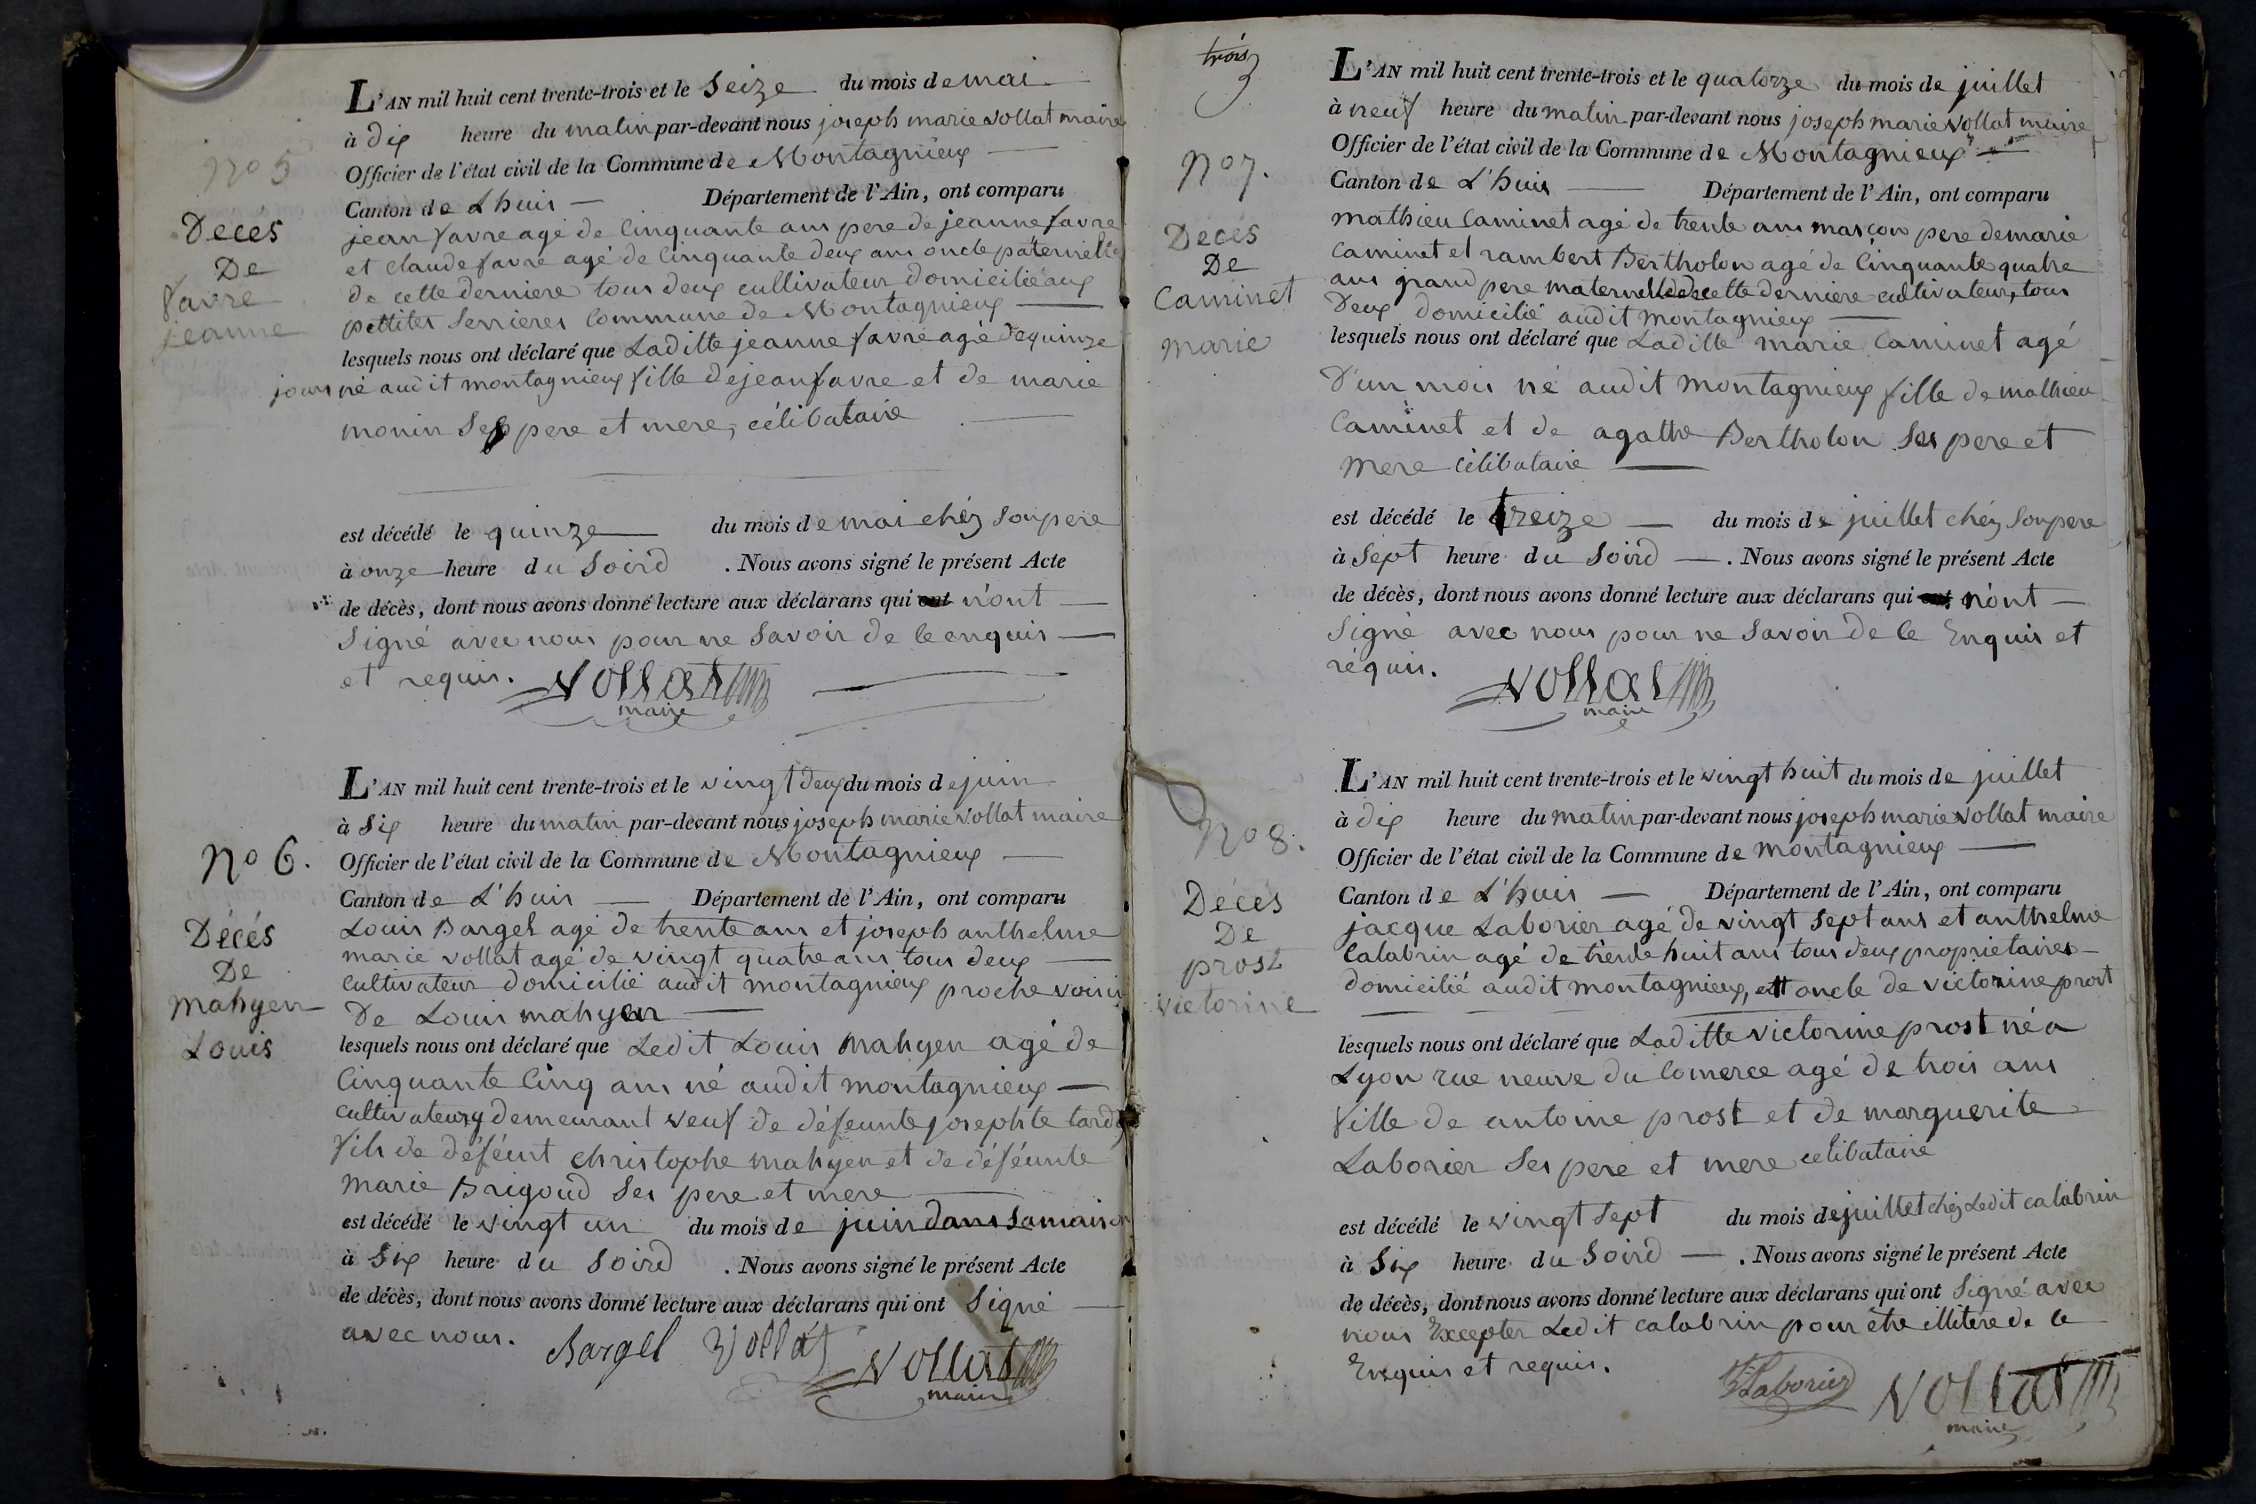 L'AN mil huit cent trente-trois et le Seize du mois de mai
à dix heure du matin par-devant nous joseph marie Vollat maire
Officier de l'état civil de la Commune de Montagnieux
Canton de Lhuis Département de l'Ain, ont comparu
jean favre agé de Cinquante ans pere de jeanne favre
et claude favre agé de Cinquante deux ans oncle paternelle
de cette derniere tous deux cultivateur domicilié aux
pettites Serrieres Commune de Montagnieux
lesquels nous ont déclaré que Laditte jeanne favre agé de quinze
jours né audit montagnieux fille de jean favre et de marie
monin Ses pere et mere, célibataire
est décédé le quinze du mois de mai chéz Son pere
à onze heure du Soird . Nous avons signé le présent Acte
de décès, dont nous avons donné lecture aux déclarans qui ont n'ont
Signé avec nous pour ne Savoir de le enquis
et requis. Vollat
maire
No 5
Décés
De
favre
jeanne
L'AN mil huit cent trente-trois et le vingt deux du mois de juin
à Six heure du matin par-devant nous joseph marie Vollat maire
Officier de l'état civil de la Commune de Montagnieux
Canton de L'huis Département de l'Ain, ont comparu
Louis Bargel agé de trente ans et joseph anthelme
marie vollat agé de vingt quatre ans tous deux
Cultivateur domicilié audit montagnieux proche voisin
De Louis mahyer
lesquels nous ont déclaré que Ledit Louis Mahyer agé de
Cinquante Cinq ans né audit montagnieux
cultivateur y demeurant veuf de défeunte josephte tardy
fils de déféunt christophe mahyer et de déféunte
Marie Brigoud Ses pere et mere
est décédé le vingt un du mois de juin dans Sa maison
à Six heure du Soird . Nous avons signé le présent Acte
de décès, dont nous avons donné lecture aux déclarans qui ont Signé
avec nous. Bargel Vollat Vollat
maire
No 6.
Décés
De
Mahyer
Louis
trois
3
L'AN mil huit cent trente-trois et le quatorze du mois de juillet
à neuf heure du matin par-devant nous joseph marie Vollat maire
Officier de l'état civil de la Commune de Montagnieux
Canton de L'huis Département de l'Ain, ont comparu
mathieu Caminet agé de trente ans masçon pere de marie
Caminet et rambert Bertholon agé de Cinquante quatre
ans grand pere maternelle de cette derniere cultivateur, tous
Deux domicilié audit montagnieux
lesquels nous ont déclaré que Laditte marie Caminet agé
D'un mois né audit montagnieux fille de mathieu
Caminet et de agathe Bertholon Ses pere et
mere célibataire
est décédé le treize du mois de juillet chéz Son pere
à Sept heure du Soird . Nous avons signé le présent Acte
de décès, dont nous avons donné lecture aux déclarans qui ont n'ont
Signé avec nous pour ne Savoir de le Enquis et
réquis. Vollat
maire
No 7.
Décés
De
Caminet
marie
L'AN mil huit cent trente-trois et le vingt huit du mois de juillet
à dix heure du matin par-devant nous joseph marie Vollat maire
Officier de l'état civil de la Commune de montagnieux
Canton de L'huis Département de l'Ain, ont comparu
jacque Laborier agé de vingt Sept ans et anthelme
Calabrin agé de trente huit ans tous deux proprietaires
domicilié audit montagnieux, et oncle de victorine prost
lesquels nous ont déclaré que Laditte victorine prost né a
Lyon rue neuve du Comerce agé de trois ans
fille de antoine prost et de marguerite
Laborier Ses pere et mere célibataire
est décédé le vingt Sept du mois de juillet chéz Ledit calabrin
à Six heure du Soird . Nous avons signé le présent Acte
de décès, dont nous avons donné lecture aux déclarans qui ont Signé avec
nous Excepter Ledit calabrin pour être illitere de le
Enquis et requis.
Laborier Vollat
maire
No 8.
Décés
De
prost
victorine